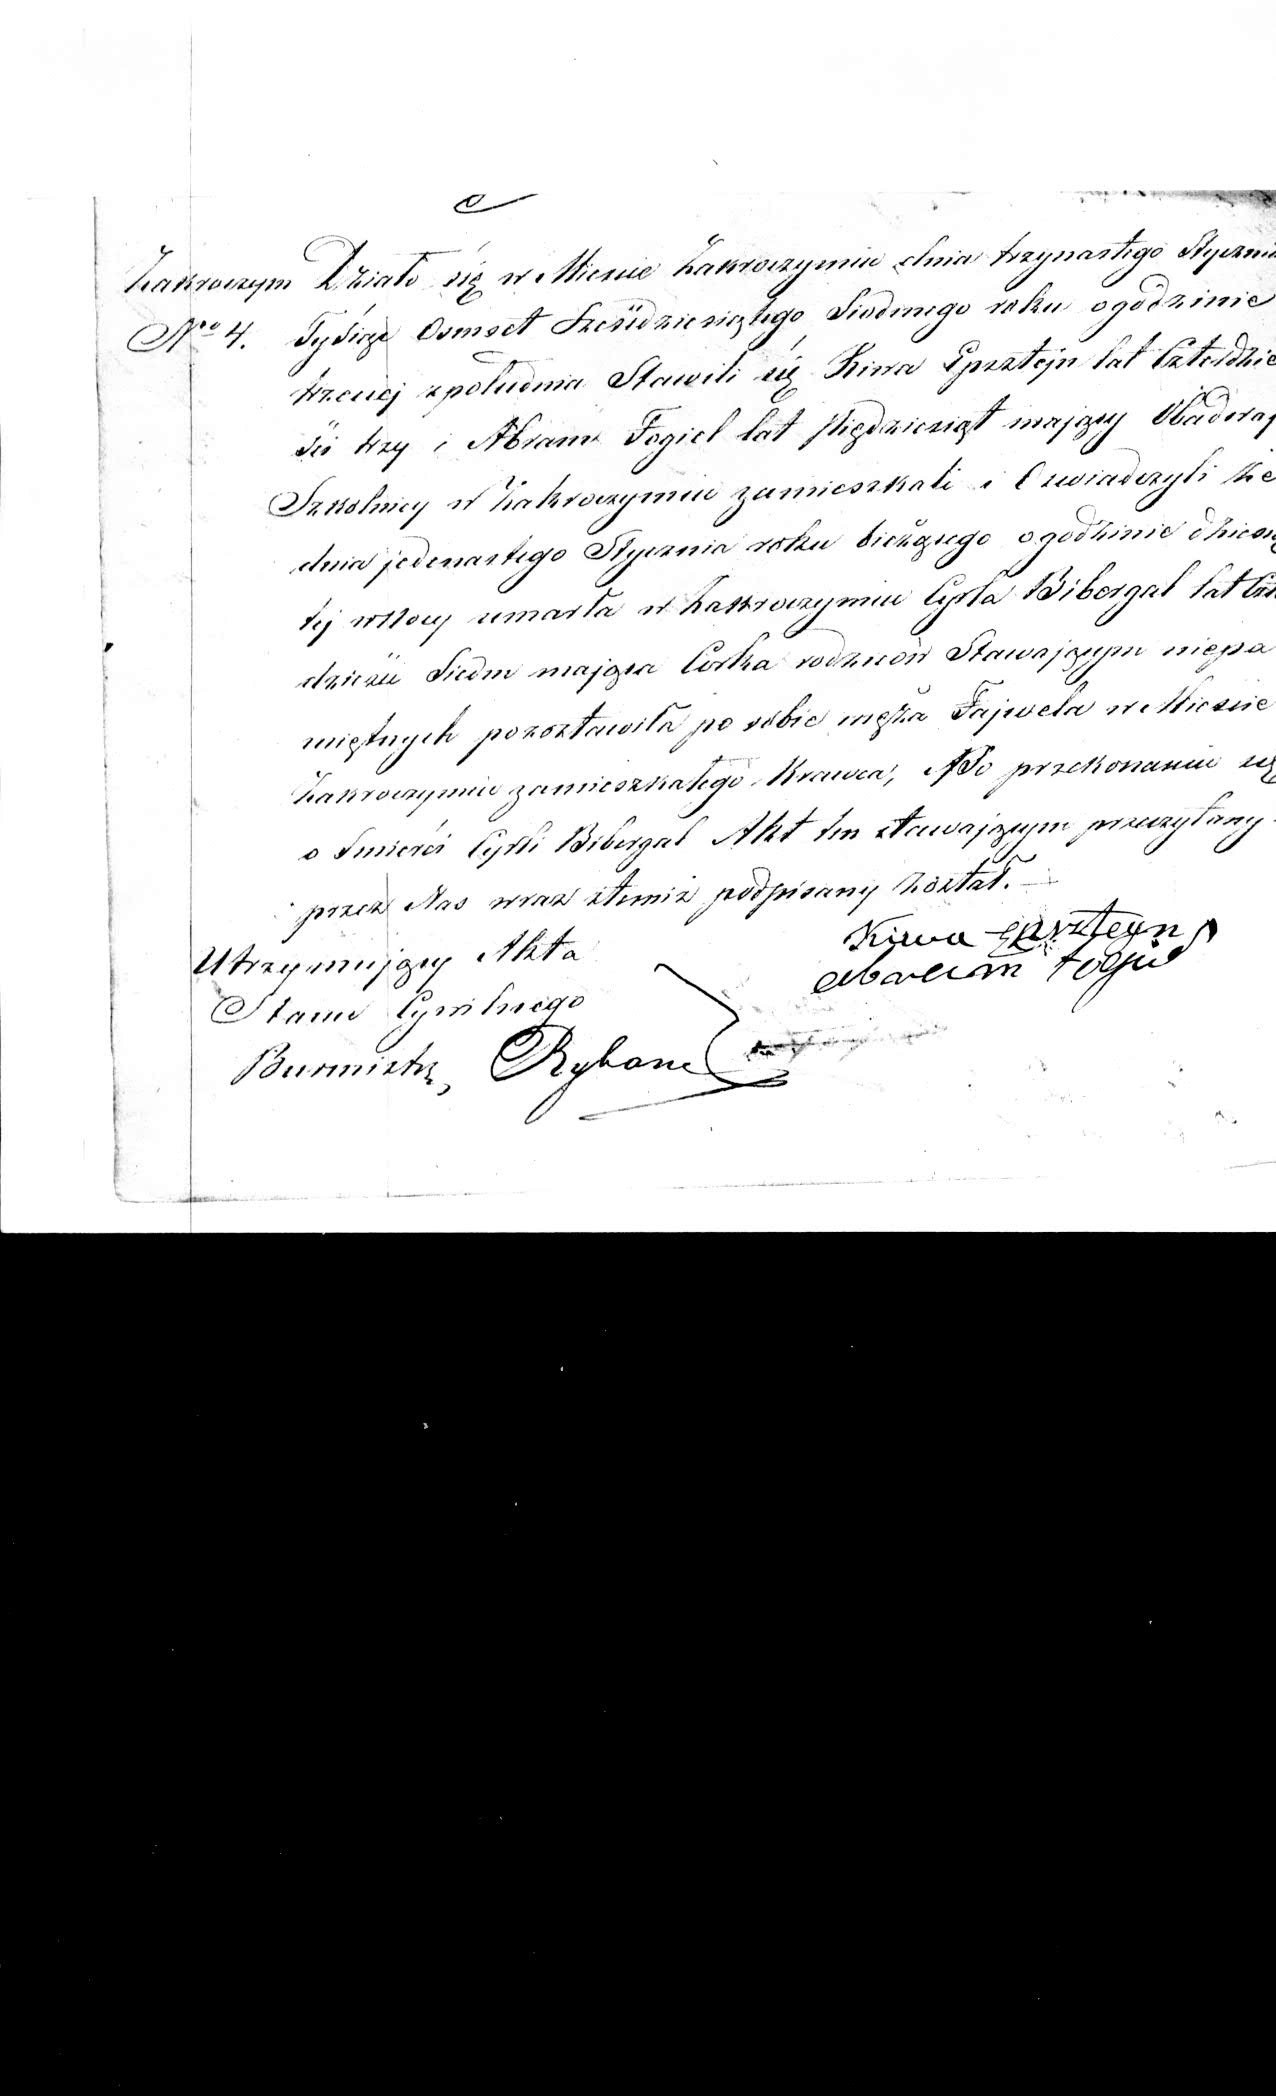 Zakroczym Działo się w Mieście Zakroczymiu dnia trzynastego Stycznia
No 4. Tysiąc Osmset Sześdziesiątego Siodmego roku o godzinie
trzeciej z południa Stawili się Kiwa Epsztejn lat Czterdzie
ści trzy i Abram Fogiel lat piędziesiąt mający Obadwaj
Szkolnicy w Zakroczymiu zamieszkali i Oświadczyli że
dnia jedenastego Stycznia roku bieżącego o godzinie dziesią
tej w Nocy umarła w Zakroczymiu Cyrla Bibergal lat
dzieści Siedm mająca Corka rodzicow Stawającym niepa
miętnych pozostawiła po sobie męża Fajwela w Mieście
Zakroczymiu zamieszkałego Krawca, Po przekonaniu się
o Śmierci Cyrli Bibergal Akt ten stawającym przeczytany
przez Nas wraz z temiż podpisany Został.
Kiwa Epsztejn
Abram Fogiel
Utrzymujący Akta
Stanu Cywilnego
Burmistrz,